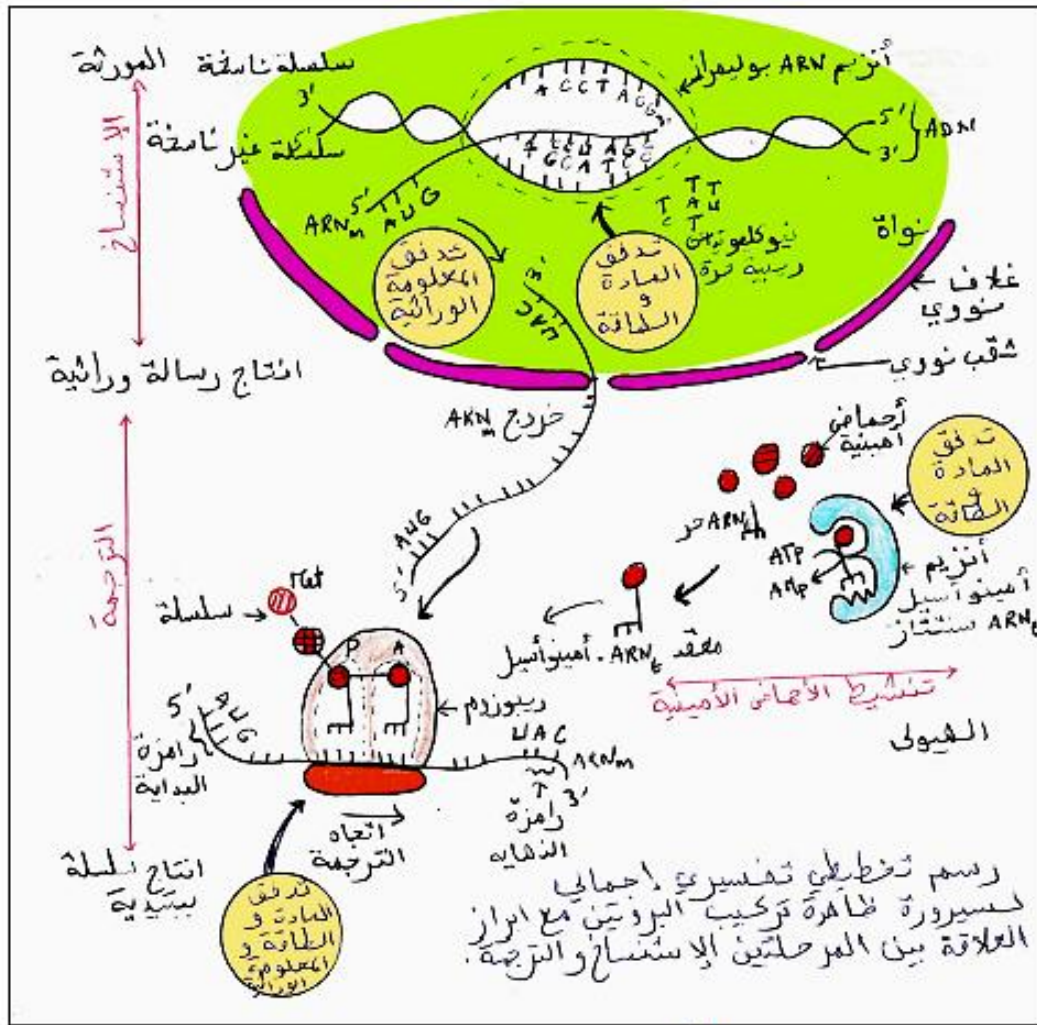 المورثة
سلسلة ناسخة
أنزيم ARN بوليمراز
3'
A C C T A C G
5'
3'
ADN
سلسلة غير ناسخة
الإستنساخ
ARNm
5'
A U G
تدفق
المعلومة
الوراثية
تدفق
المادة
و
الطاقة
نيوكليوتيدات
ريبية حرة
نواة
غلاف
نووي
ثقب نووي
3'
UAC
انتاج رسالة وراثية
خروج ARNm
أحماض
أمينية
تدفق
المادة
و
الطاقة
ARNt حر
ATP
AMP
أنزيم
أمينوأسيل
ARNt سنتتاز
الترجمة
AUG
5'
Met
سلسلة
P
A
معقد ARNt - أمينوأسيل
تنشيط الأحماض الأمينية
ريبوزوم
الهيولى
5'
AUG
رامزة
البداية
UAC
ARNm
3'
رامزة
النهاية
اتجاه
الترجمة
انتاج سلسلة
ببتيدية
تدفق
المادة و
الطاقة و
المعلومة
الوراثية
رسم تخطيطي تفسيري إجمالي
لسيرورة ظاهرة تركيب البروتين مع ابراز
العلاقة بين المرحلتين الإستنساخ والترجمة.